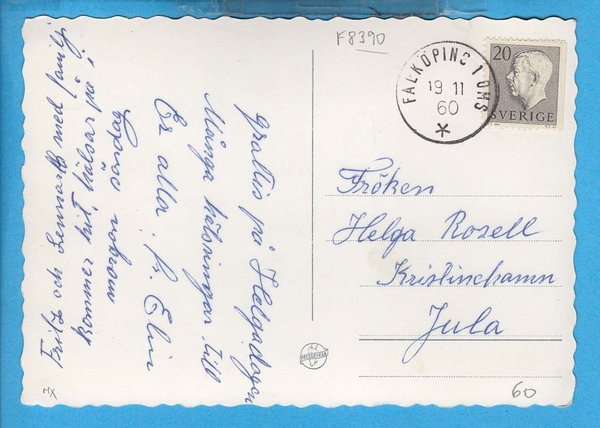 F8390
20
SVERIGE
FALKÖPING 1 OMS
19 11
60
Grattis på Helgadagen
Många hälsningar till
Er alla. fr. Elin
Fritz och Lennarts med familj
kommer hit, hälsar på i
morgon söndag
Fröken
Helga Rosell
Kristinehamn
Jula
60